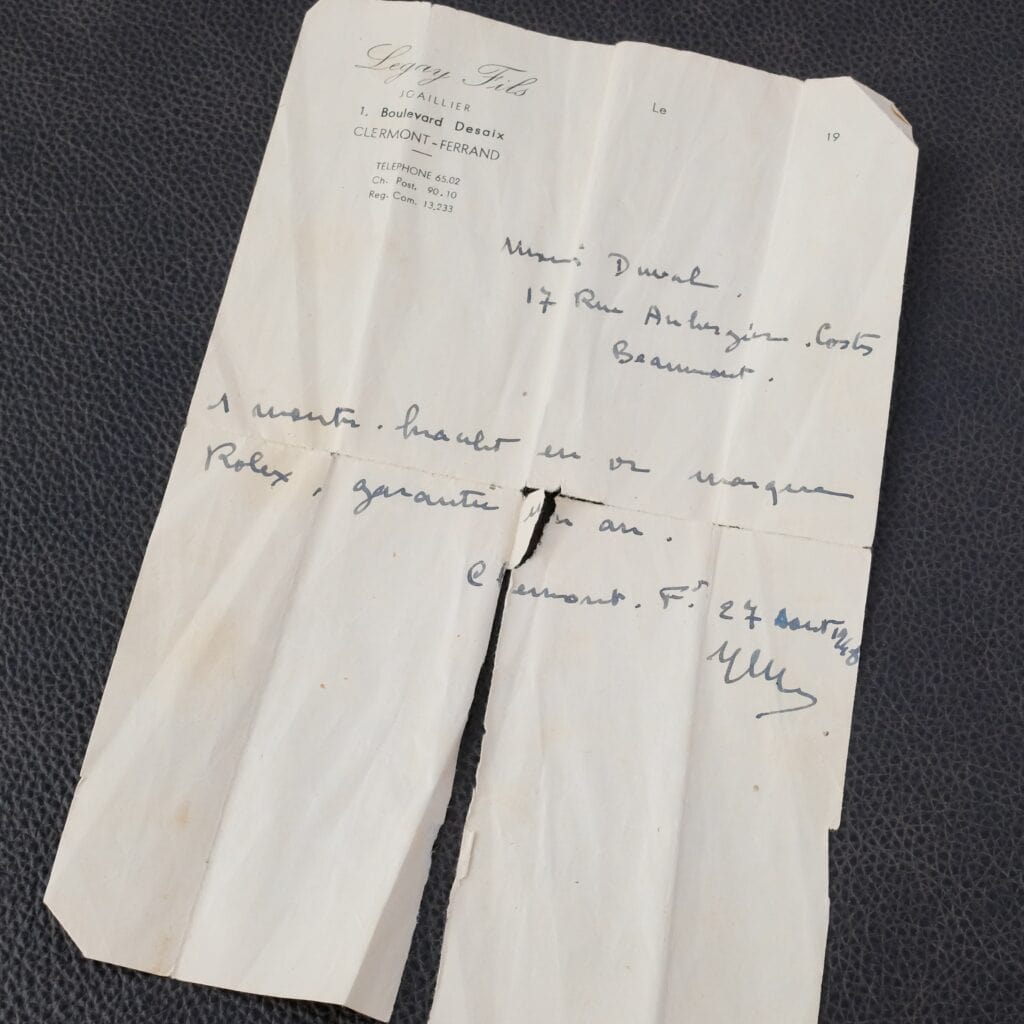 Legay Fils
JOAILLIER
1, Boulevard Desaix
CLERMONT-FERRAND
TÉLÉPHONE 65.02
Ch. Post. 90.10
Reg. Com. 13.233
Le 19
Duval.
17 Rue
Beaumont.
1 montre-bracelet en or marque
Rolex, garantie un an.
Clermont. Fd 27 Aout 1948